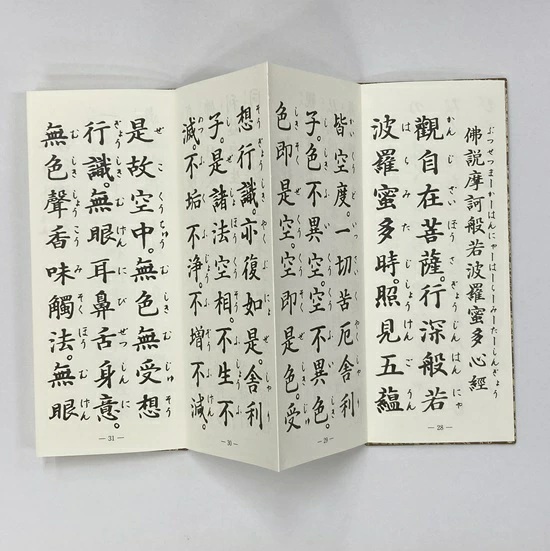 佛説摩訶般若波羅蜜多心經
觀自在菩薩。行深般若
波羅蜜多時。照見五蘊
— 28 —
皆空度。一切苦厄舎利
子。色不異空。空不異色。
色即是空。空即是色。受
— 29 —
想行識。亦復如是。舎利
子。是諸法空相。不生不
滅。不垢不浄。不増不減。
— 30 —
是故空中。無色無受想
行識。無眼耳鼻舌身意。
無色聲香味觸法。無眼
— 31 —